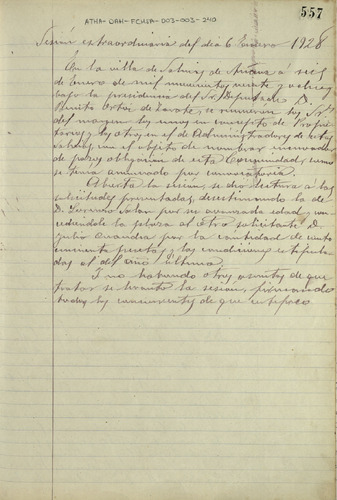 ATHA-DAH-FCHSA-003-003-240
557
Sesión extraordinaria del día 6 Enero 1928
En la villa de Salinas de Añana á seis
de Enero de mil novecientos veinte y ocho
bajo la presidencia del Sr. Diputado D.
Benito Ortiz de Zarate, se reunieron los Srs.
del margen los unos en concepto de Propie
tarios y los otros en el de Administradores de
Salinas con el objeto de nombrar
de pozos obligacion de esta Comunidad, como
se tenia anunciado por convocatoria.
Abierta la sesion, se dio lectura a las
solicitudes presentadas, desestimando la de
D. Lorenzo por su avanzada edad, con
cediendole la plaza al otro solicitante D.
por la cantidad de
cincuenta pesetas y las condiciones estipula
das el del año último.
Y no habiendo otros asuntos de que
tratar se levantó la sesion, firmando
todos los concurrentes de que certifico.